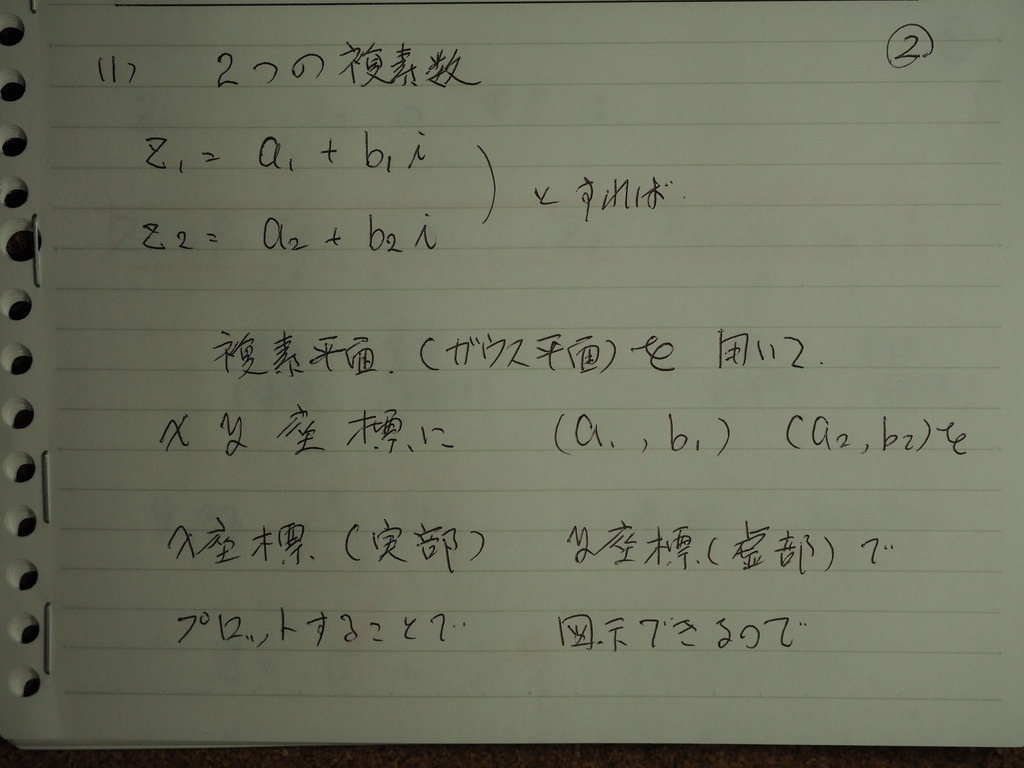 ②
(1) 2つの複素数
z₁ = a₁ + b₁i
z₂ = a₂ + b₂i ) とすれば.
複素平面.(ガウス平面)を 用いて.
x y 座標に (a₁, b₁) (a₂, b₂)を
x座標.(実部) y座標(虚部)で
プロットすることで 図示できるので